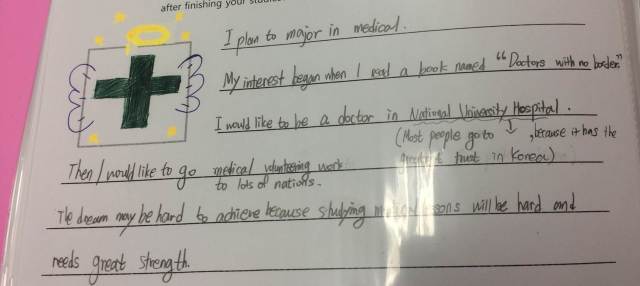 after finishing your studies
I plan to major in medical.
My interest began when I read a book named "Doctors with no border."
I would like to be a doctor in National University Hospital.
(Most people go to ↓, because it has the
greatest trust in Korea)
Then I would like to go medical volunteering work
to lots of nations.
The dream may be hard to achieve because studying medical lessons will be hard and
needs great strength.